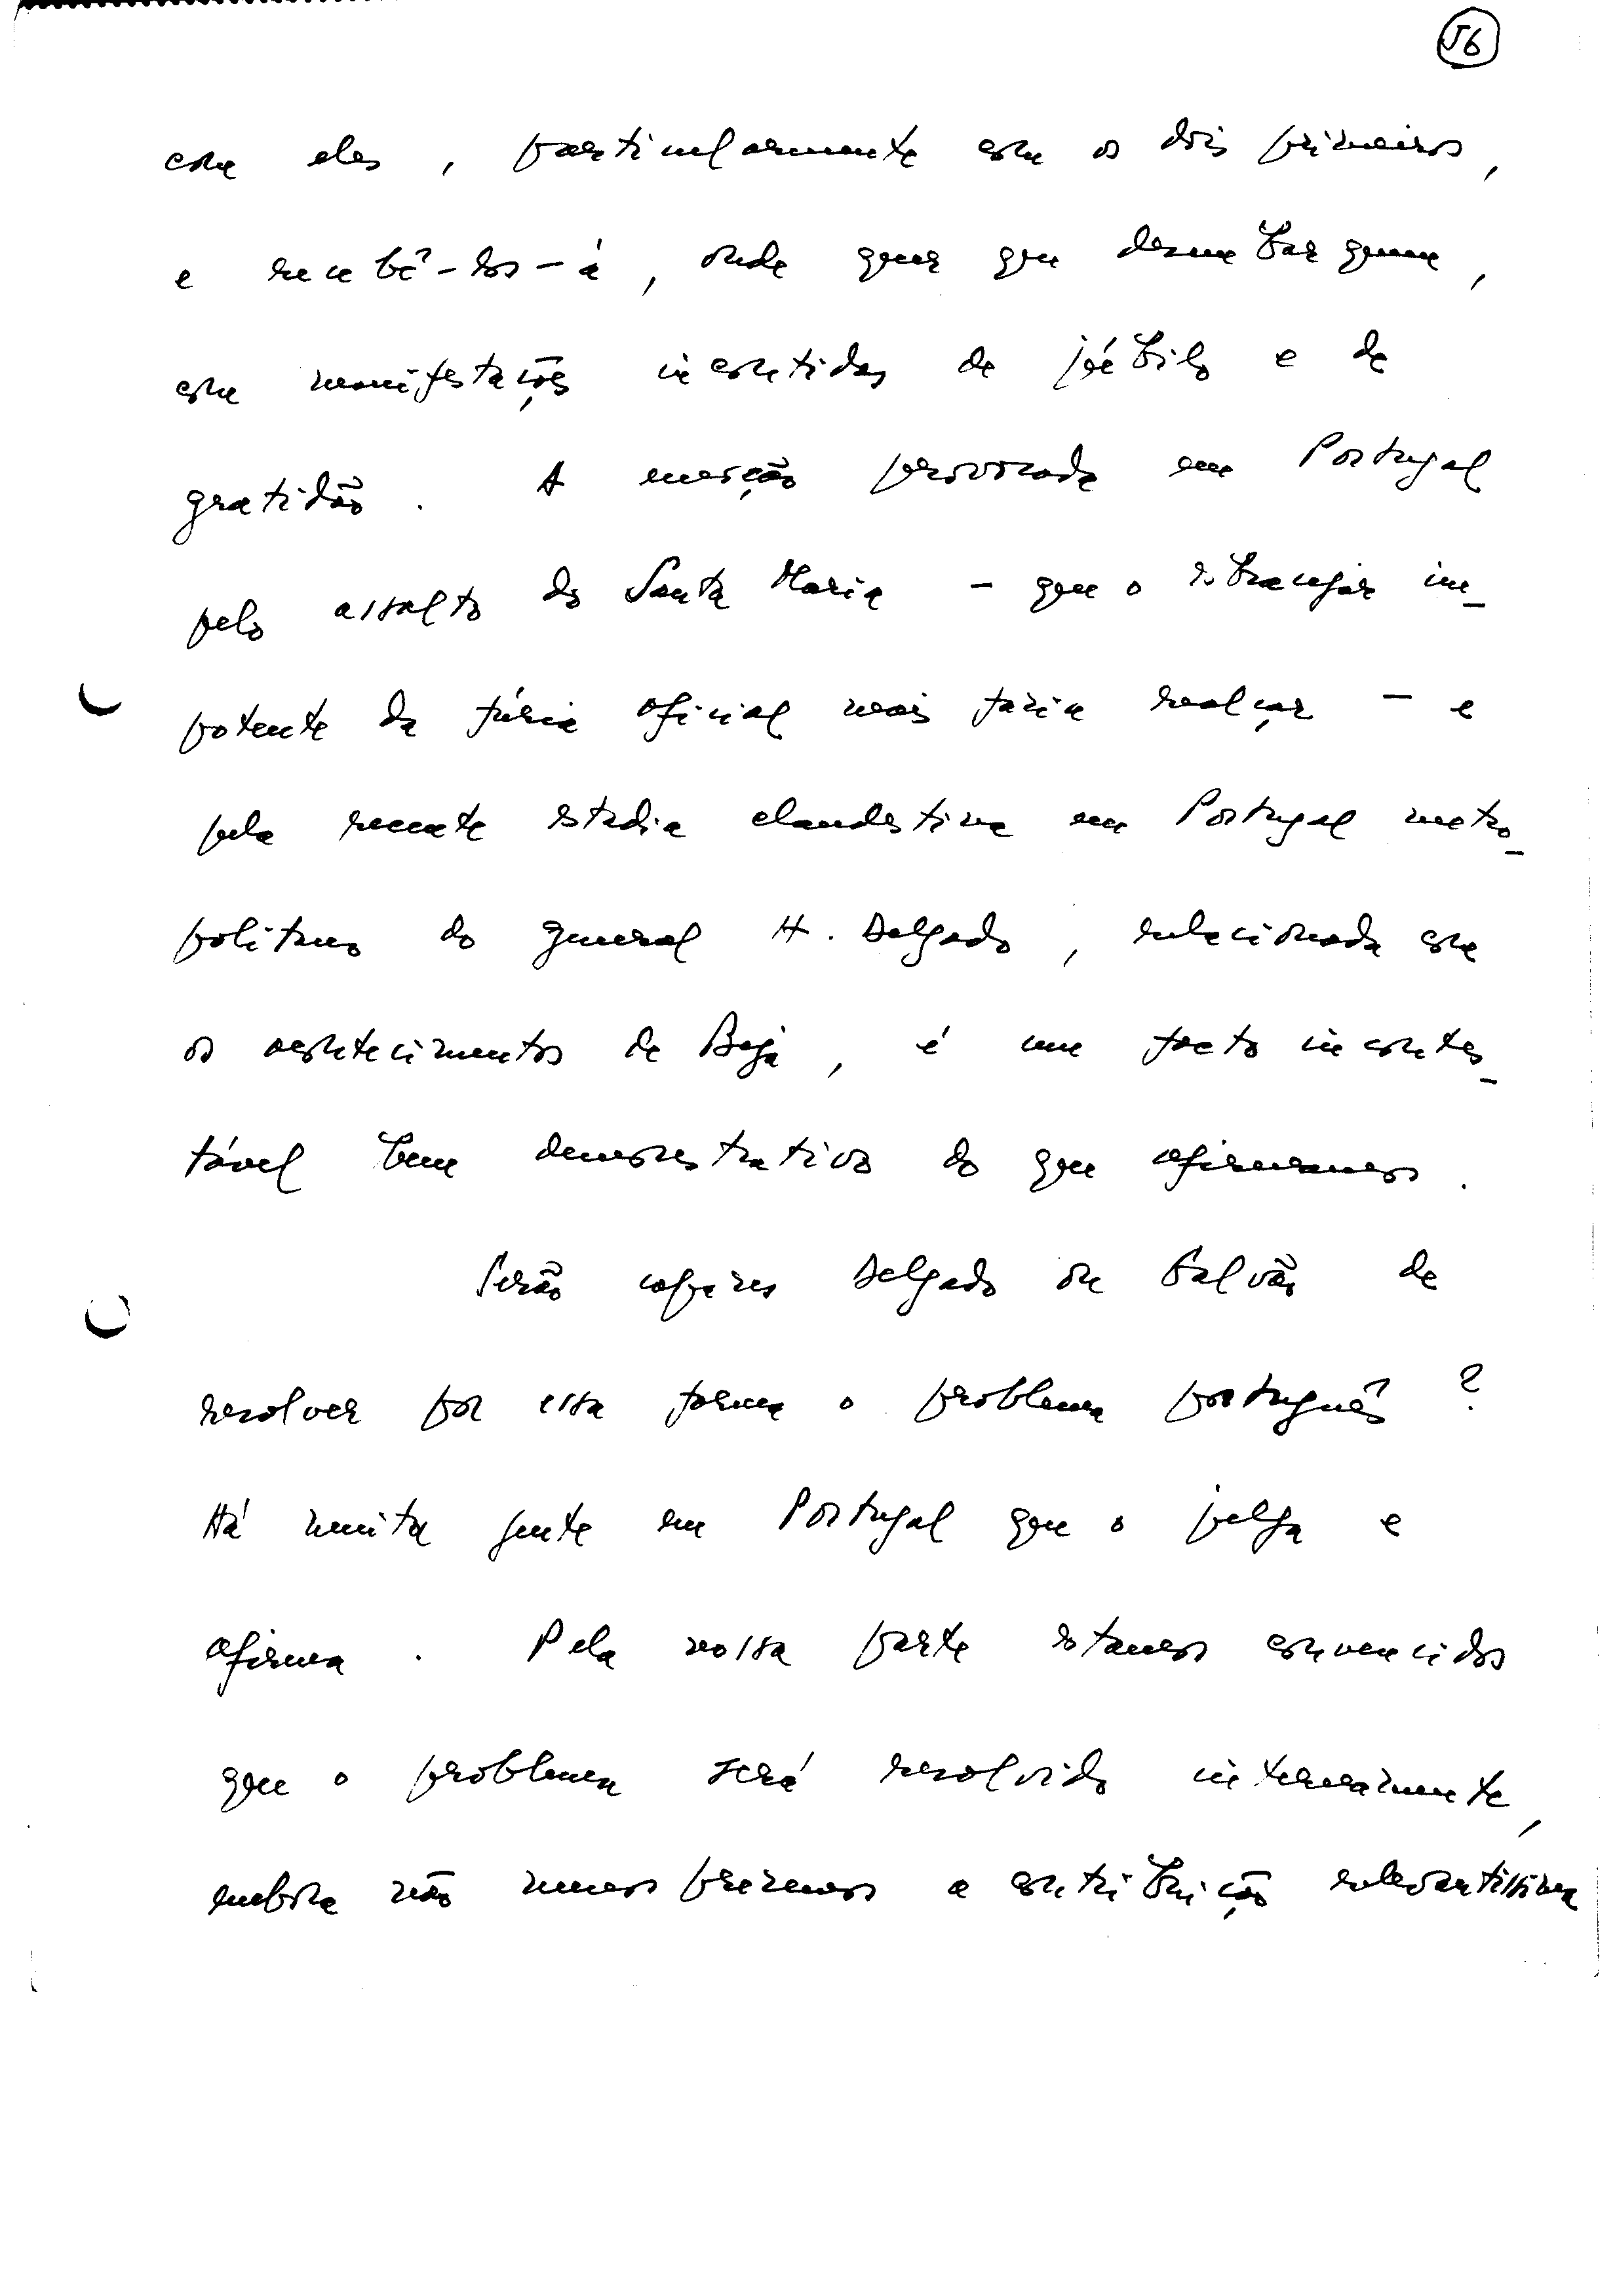 56
com eles, particularmente com os dois primeiros,
e recebê-los-á, onde quer que desembarquem,
com manifestações incontidas de júbilo e de
gratidão. A emoção provocada em Portugal
pelo assalto do Santa Maria — que o estrebuchar im-
potente da fúria oficial mais faria realçar — e
pela recente estadia clandestina em Portugal metro-
politano do general H. Delgado, relacionada com
os acontecimentos de Beja, é um facto incontes-
tável bem demonstrativo do que afirmamos.
Serão capazes Delgado ou Galvão de
resolver por essa forma o problema português?
Há muita gente em Portugal que o julga e
afirma. Pela nossa parte estamos convencidos
que o problema será resolvido internamente,
embora não menosprezemos a contribuição relevantíssima